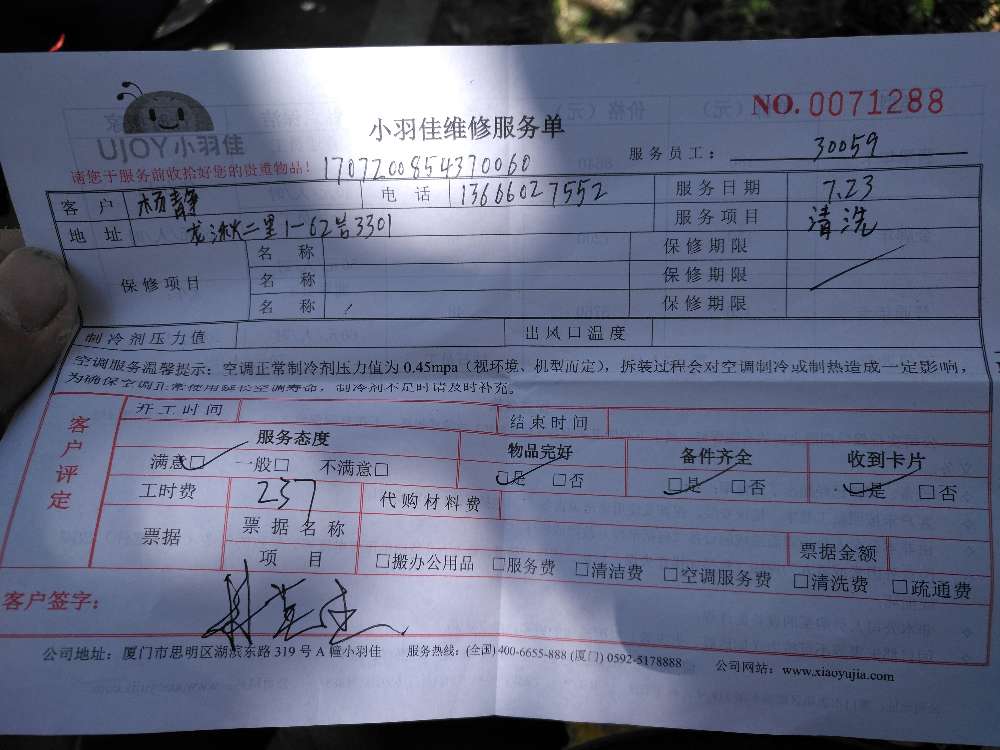 NO.0071288
UJOY小羽佳
小羽佳维修服务单
服务员工：30059
请您于服务前收拾好您的贵重物品！1707200854370060
客户 杨静 电话 13666027552 服务日期 7.23
地址 龙湫二里1-62号3301 服务项目 清洗
保修项目 名称 保修期限
名称 保修期限
名称 保修期限
制冷剂压力值 出风口温度
空调服务温馨提示：空调正常制冷剂压力值为0.45mpa（视环境、机型而定），拆装过程会对空调制冷或制热造成一定影响，
为确保空调正常使用延长空调寿命，制冷剂不足时请及时补充。
客户评定
开工时间 结束时间
服务态度 物品完好 备件齐全 收到卡片
满意□ 一般□ 不满意□ □是 □否 □是 □否 □是 □否
工时费 237 代购材料费
票据 票据名称 票据金额
项目 □搬办公用品 □服务费 □清洁费 □空调服务费 □清洗费 □疏通费
客户签字：
公司地址：厦门市思明区湖滨东路319号A幢小羽佳 服务热线：(全国)400-6655-888 (厦门) 0592-5178888 公司网站：www.xiaoyujia.com